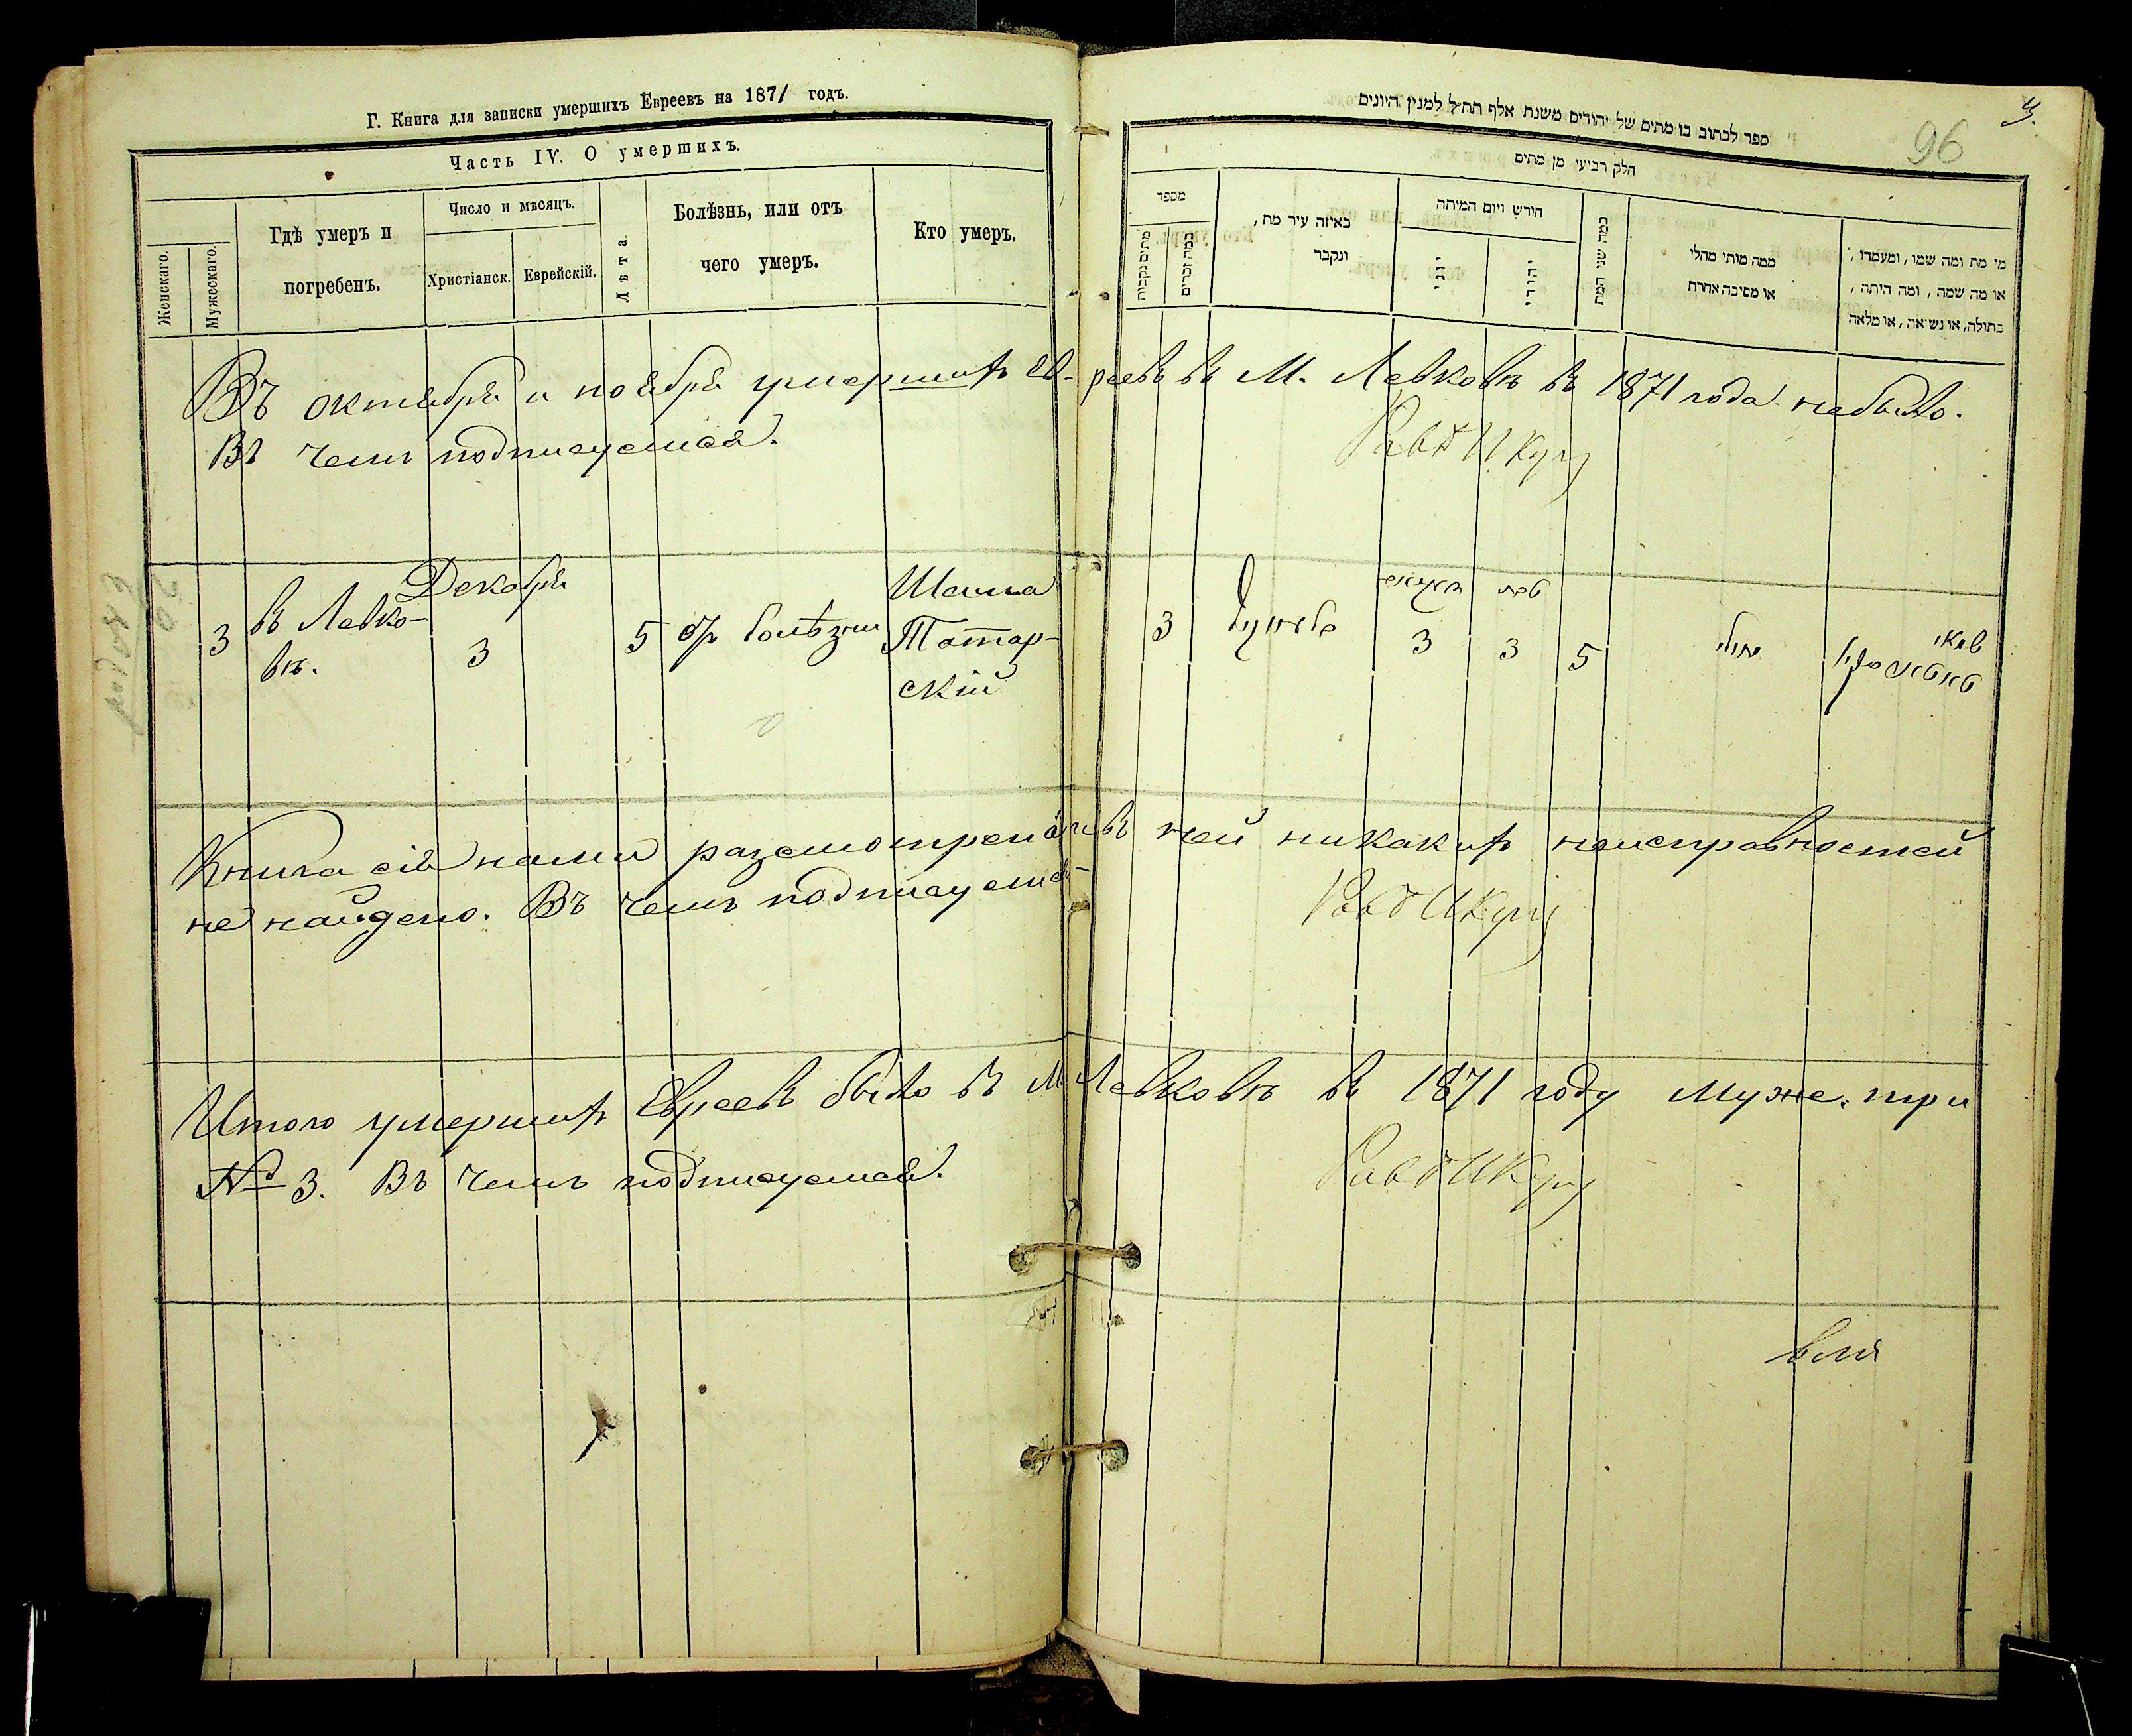 Г. Книга для записки умершихъ Евреевъ на 1871 годъ.
Часть IV. О умершихъ.
Женскаго.
Мужескаго.
Гдѣ умеръ и
погребенъ.
Число и мѣсяцъ.
Христіанск.
Еврейскій.
Лѣта.
Болѣзнь, или отъ
чего умеръ.
Кто умеръ.
ספר לכתוב בו מתים של יהודים משנת אלף תת״ל למנין היונים
96
חלק רביעי מן מתים
מספר
באיזה עיר מת,
ונקבר
חודש ויום המיתה
יוני
יהודי
כמה שני המת
ממה מותי מחלי
או מסיבה אחרת
מי מת ומה שמו, ומעמדו,
או מה שמה, ומה היתה,
בתולה, או נשואה, או מלאה
Въ октябрѣ и ноябрѣ умершихъ ев-реевъ въ М. Левковѣ въ 1871 года небыло.
Въ чемъ подписуемся.
3
въ Левко-
вѣ.
Декабря
3
5
отъ болѣзни
Шама
Татар-
скій
3
3
3
5
Книга сія нами разсмотрена и въ ней никакихъ неисправностей
не найдено. Въ чемъ подписуемся
Итого умершихъ Евреевъ было въ М. Левковѣ въ 1871 году Муже. три
№ 3. Въ чемъ подписуемся.